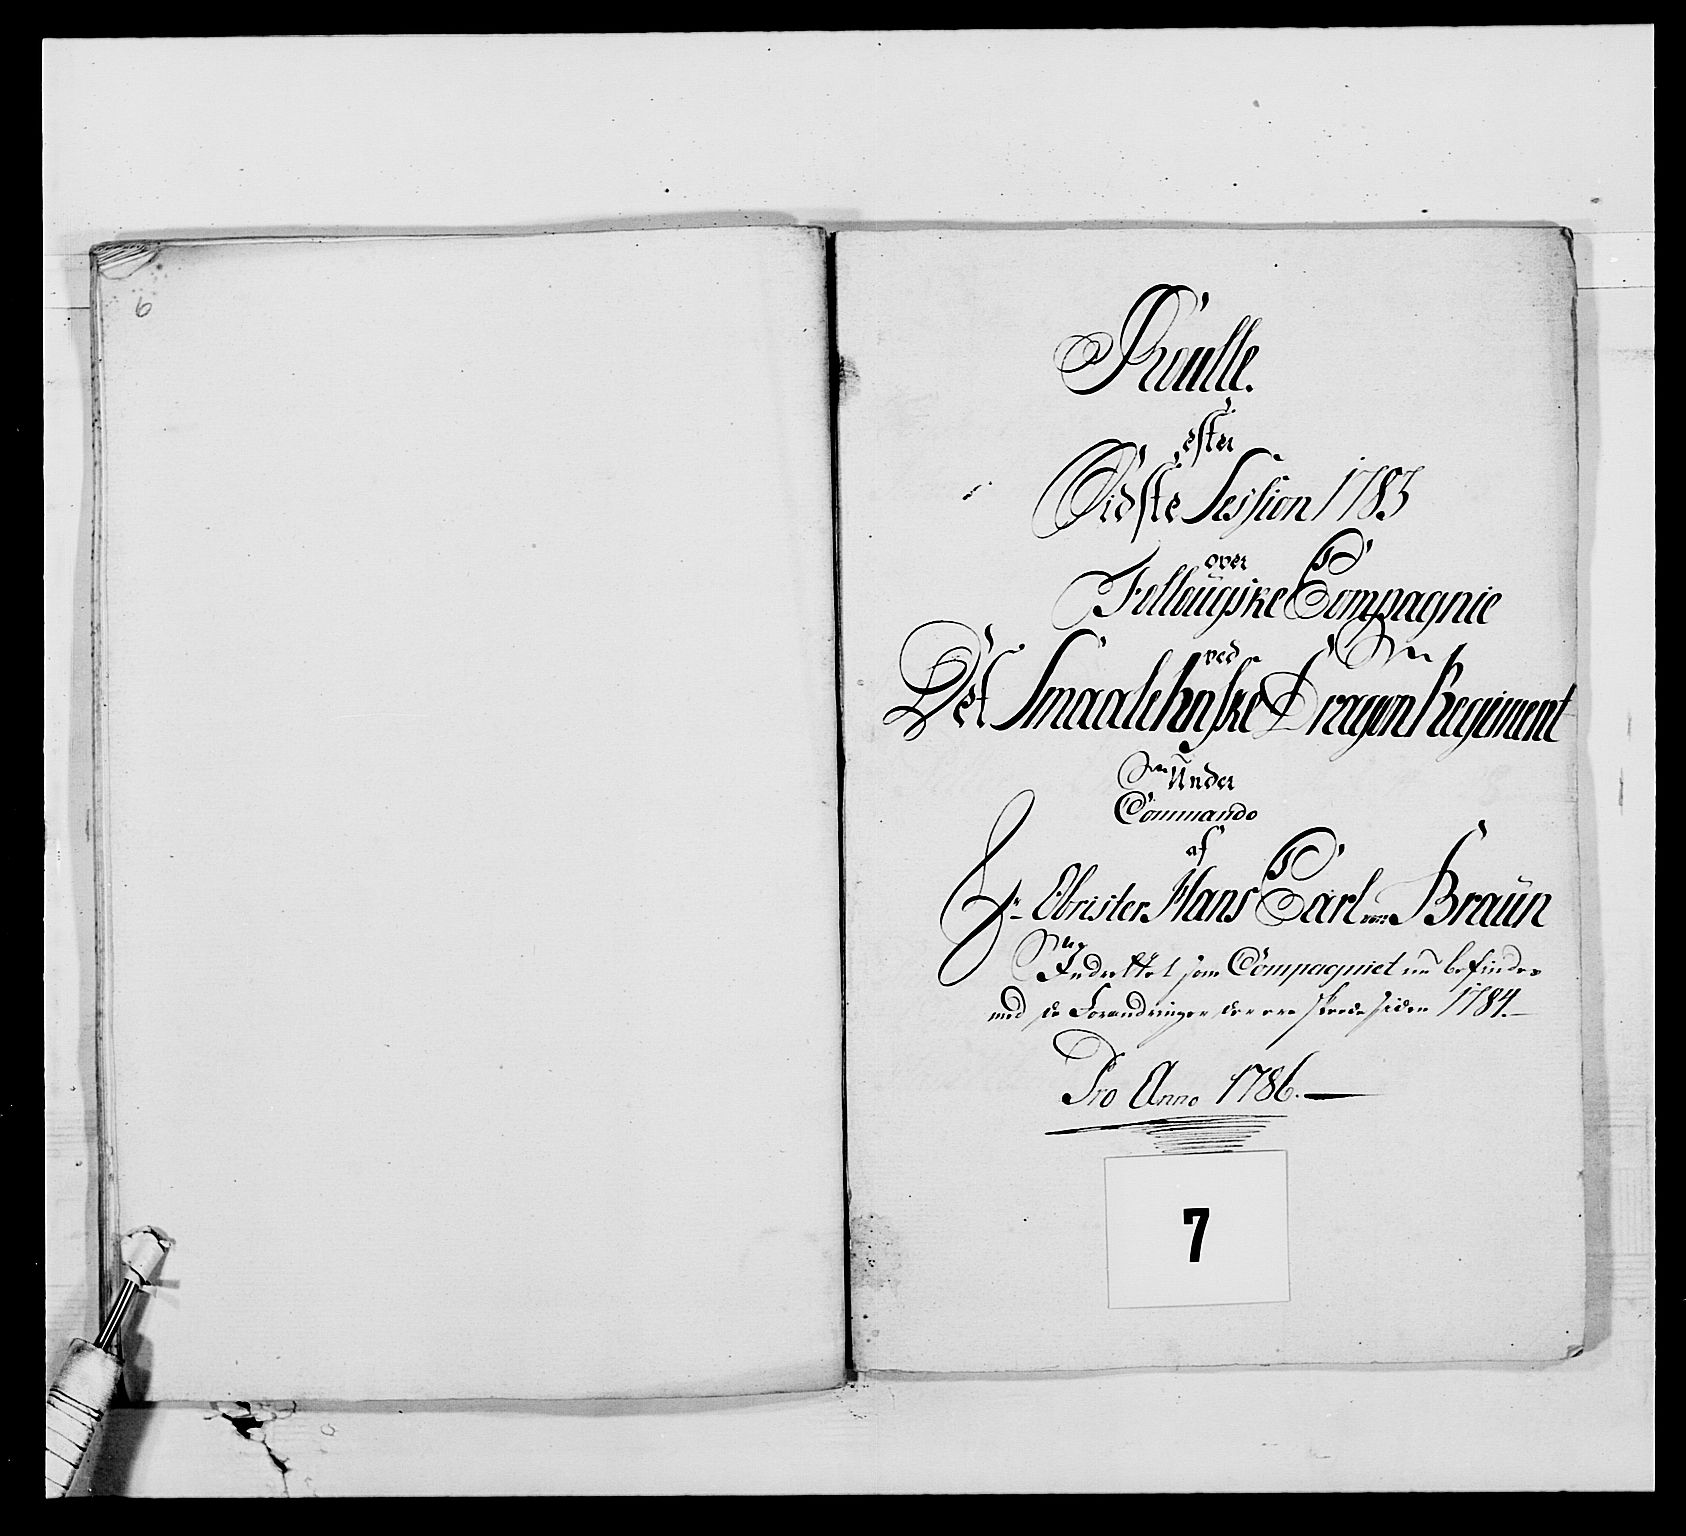 6
Roulle.
efter
Sidste Session 1783
over
Follougske Compagnie
ved
Det Smaalehnske Dragon Regiment
Under
Commando
af
Hr Obrister Hans Carl von Braün
Indrettet som Compagniet nu befindes
med de Forandringer der ere skeede siden 1784.
Pro Anno 1786.
7